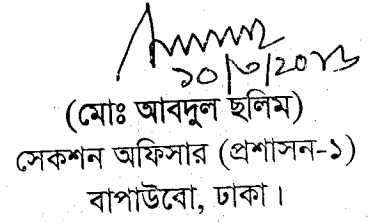 ১০/৩/20১৬
(মোঃ আবদুল ছলিম)
সেকশন অফিসার (প্রশাসন-১)
বাপাউবো, ঢাকা।